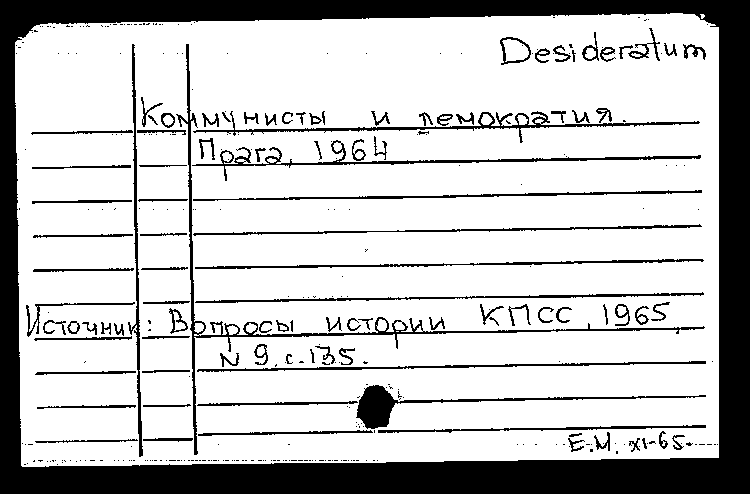 Desideratum
Коммунисты и демократия.
Прага, 1964
Источник: Вопросы истории КПСС, 1965,
N 9, с. 135.
Е.М. XI-65.